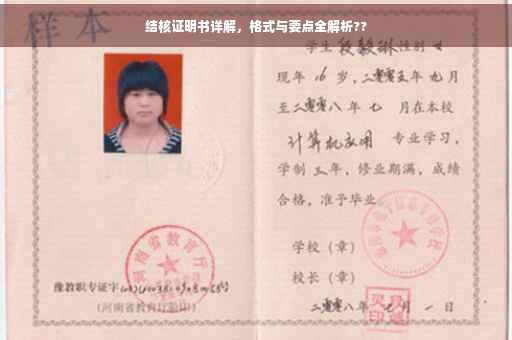 结核证明书详解，格式与要点全解析??
样本
学生段毅琳性别女
现年16岁，二零零五年九月
至二零零八年七月在本校
计算机应用 专业学习，
学制三年，修业期满，成绩
合格，准予毕业
学校（章）
校长（章）
二零零八年七月一日
河南省教育厅
豫教职专证字
（河南省教育厅验印）